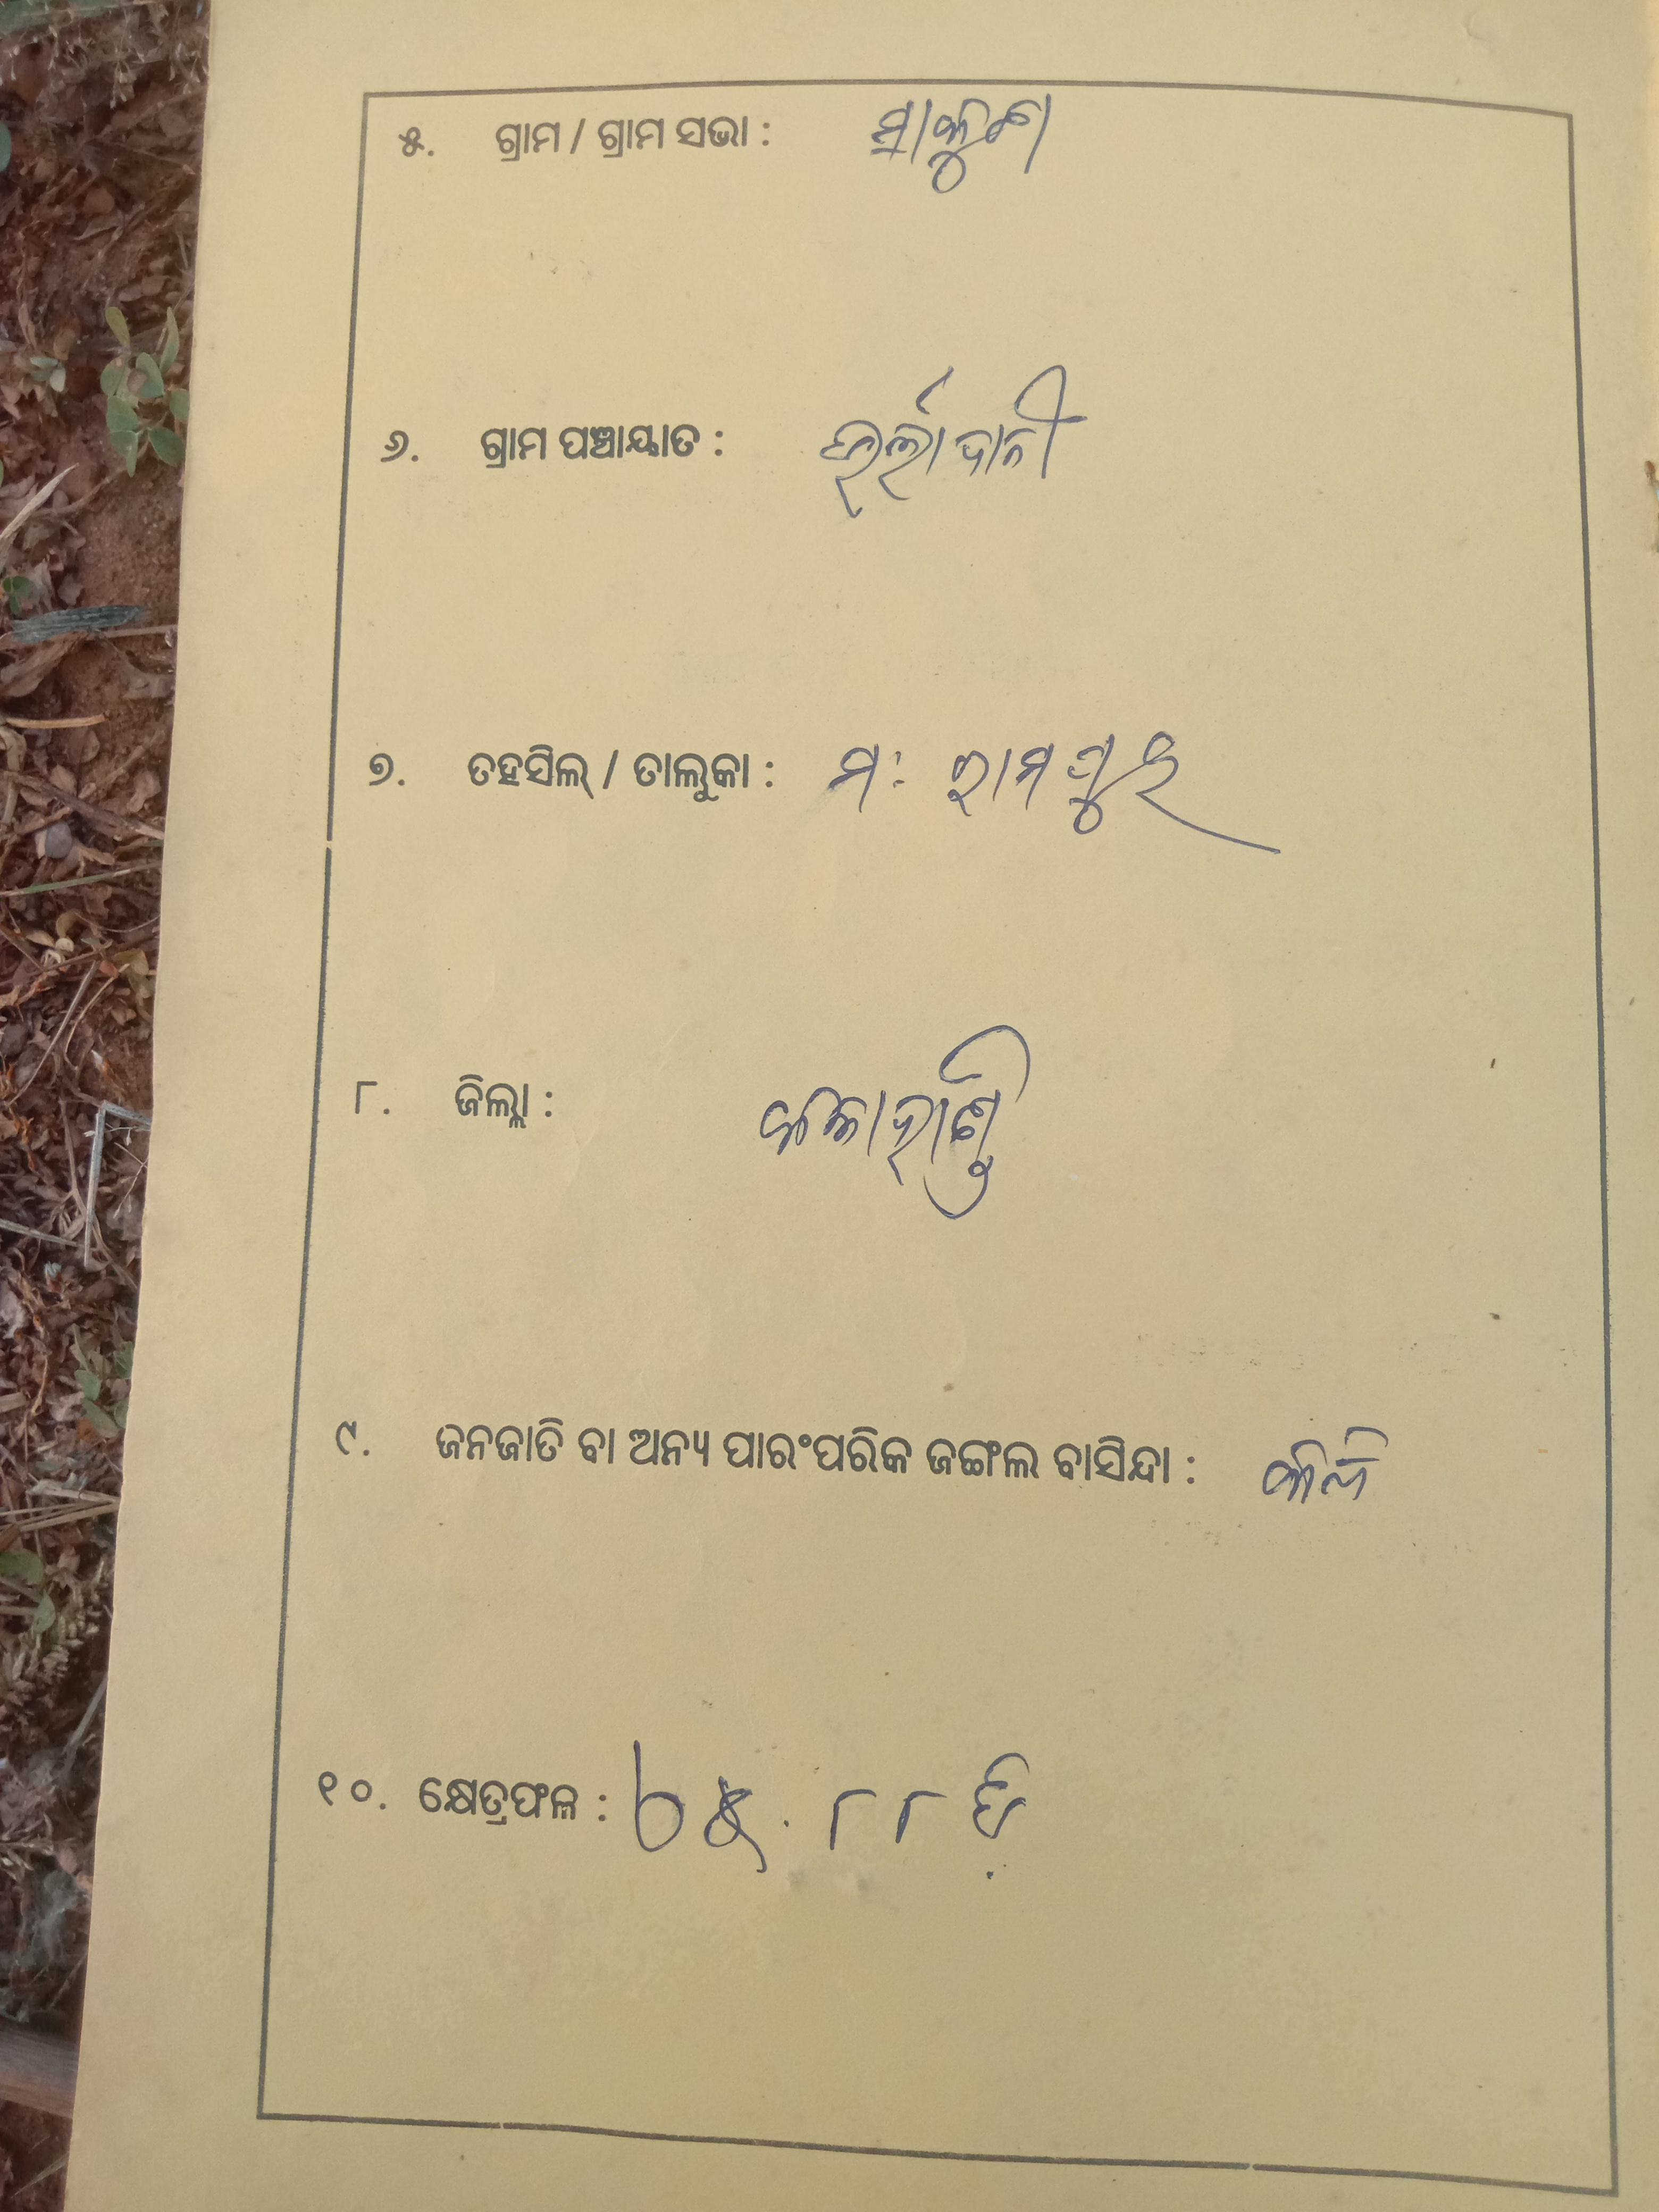 ୫. ଗ୍ରାମ / ଗ୍ରାମ ସଭା :
୬. ଗ୍ରାମ ପଞ୍ଚାୟାତ :
୭. ତହସିଲ୍ / ତାଲୁକା : ମ: ରାମପୁର
୮. ଜିଲ୍ଲା : କଳାହାଣ୍ଡି
୯. ଜନଜାତି ବା ଅନ୍ୟ ପାରଂପରିକ ଜଙ୍ଗଲ ବାସିନ୍ଦା :
୧୦. କ୍ଷେତ୍ରଫଳ : ୭୫.୮୮